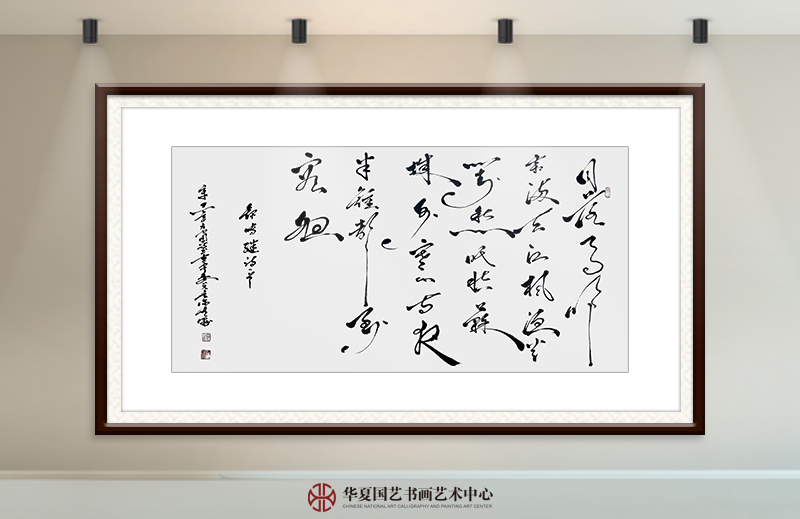 月落烏啼
霜滿天江楓漁火
對愁眠姑蘇
城外寒山寺夜
半鐘聲到
客船
張繼詩
辛丑
华夏国艺书画艺术中心
CHINESE NATIONAL ART CALLIGRAPHY AND PAINTING ART CENTER